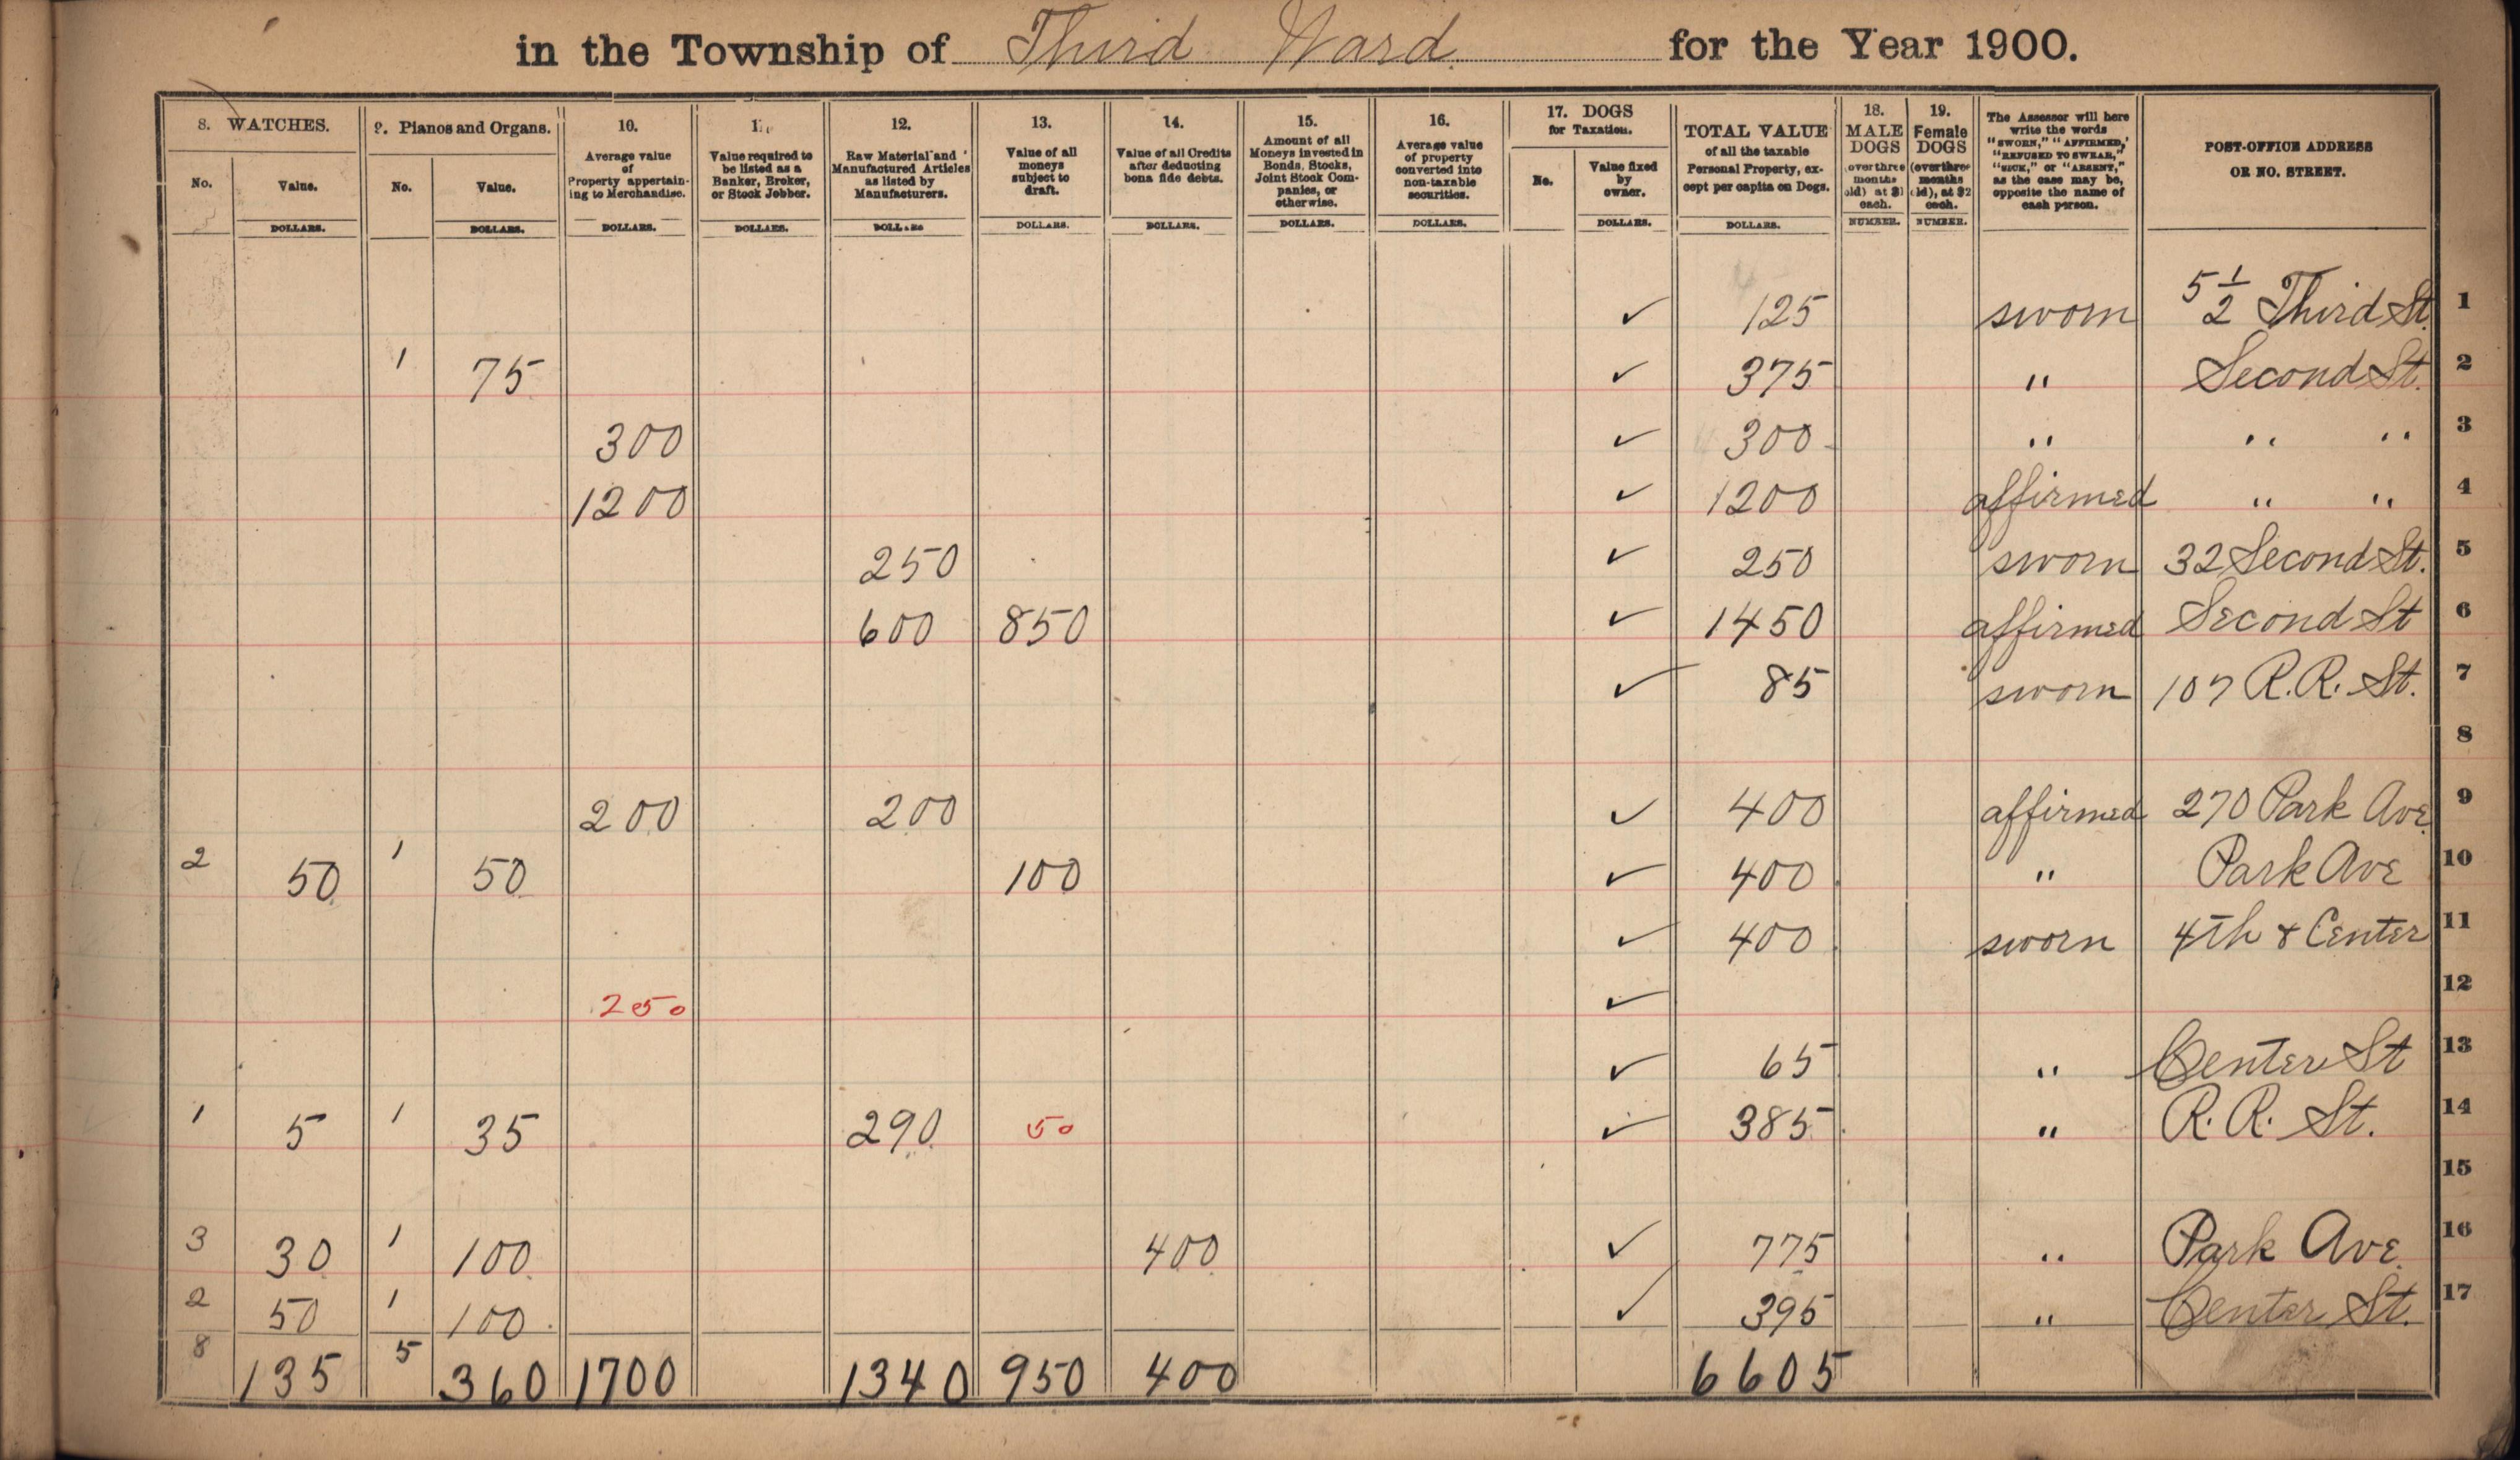 in the Township of Third Ward. for the Year 1900.
8. WATCHES. 9. Pianos and Organs. 10. 11. 12. 13. 14. 15. 16. 17. DOGS for Taxation. TOTAL VALUE of all the taxable Personal Property, except per capita on Dogs. 18. MALE DOGS over three months old) at $1 each. 19. Female DOGS (over three months old), at $2 each. The Assessor will here write the words "SWORN," "AFFIRMED," "REFUSED TO SWEAR," "SICK," or "ABSENT," as the case may be, opposite the name of each person. POST-OFFICE ADDRESS OR NO. STREET.
No. Value. No. Value. Average value of Property appertaining to Merchandise. Value required to be listed as a Banker, Broker, or Stock Jobber. Raw Material and Manufactured Articles as listed by Manufacturers. Value of all moneys subject to draft. Value of all Credits after deducting bona fide debts. Amount of all Moneys invested in Bonds, Stocks, Joint Stock Companies, or otherwise. Average value of property converted into non-taxable securities. No. Value fixed by owner.
DOLLARS. DOLLARS. DOLLARS. DOLLARS. DOLLARS DOLLARS. DOLLARS. DOLLARS. DOLLARS. DOLLARS. DOLLARS. NUMBER. NUMBER.
✓ 125 sworn 5 1/2 Third St. 1
1 75 ✓ 375 " Second St. 2
300 ✓ 300 " " " 3
1200 ✓ 1200 affirmed " " 4
250 ✓ 250 sworn 32 Second St. 5
600 850 ✓ 1450 affirmed Second St 6
✓ 85 sworn 107 R.R. St. 7
8
200 200 ✓ 400 affirmed 270 Park Ave. 9
2 50 1 50 100 ✓ 400 " Park Ave 10
✓ 400 sworn 4th & Center 11
250 ✓ 12
✓ 65 " Center St 13
1 5 1 35 290 50 ✓ 385 " R.R. St. 14
15
3 30 1 100 400 ✓ 775 " Park Ave. 16
2 50 1 100 ✓ 395 " Center St. 17
8 135 5 360 1700 1340 950 400 6605